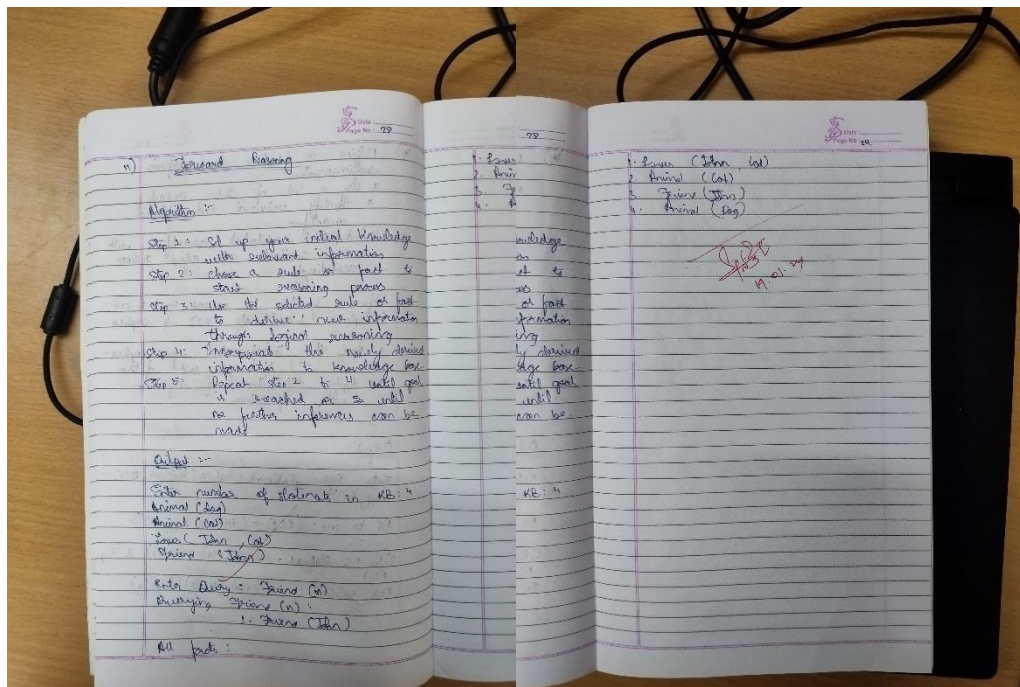 Date :
Page No : 28
11) Forward Reasoning
Algorithm :-
Step 1 : Set up your initial knowledge
with relevant information
Step 2 : choose a rule or fact to
start reasoning process
Step 3 : Use the selected rule or fact
to derive new information
through logical reasoning
Step 4 : Incorporate the newly derived
information to knowledge base.
Step 5 : Repeat step 2 to 4 until goal
is reached or until
no further inferences can be
made
Output :-
Enter number of statements in KB : 4
Animal (Dog)
Animal (Cat)
Loves (John, Cat)
Friend (John)
Enter Query : Friend (x)
Querying Friend (x) :
1. Friend (John)
All facts :
1. Loves
2. Ani
3. F
4. A
28
owledge
on
ct to
ss
or fact
formation
ing
ly derived
dge base.
until goal
until
can be
KB : 4
Date :
Page No : 29
1. Loves (John, Cat)
2. Animal (Cat)
3. Friend (John)
4. Animal (Dog)
19.01.24